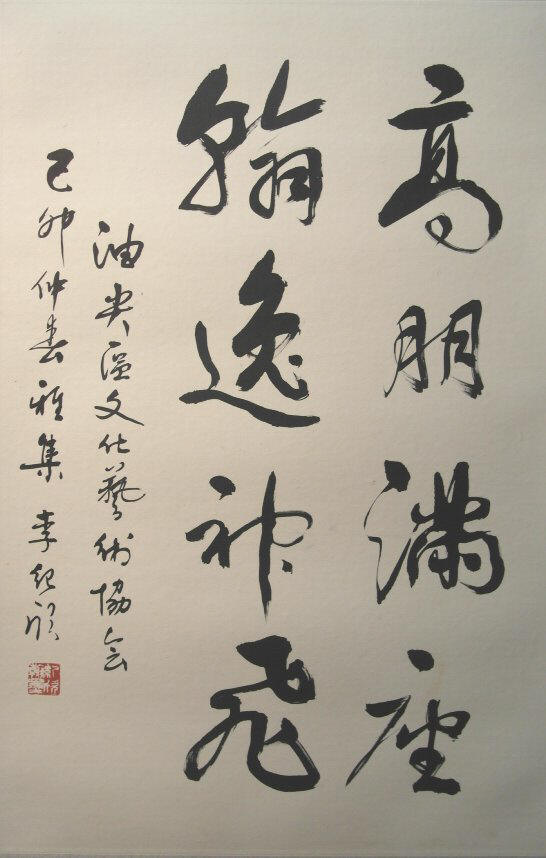 高朋滿座
翰逸神飛
油尖區文化藝術協會
己卯仲春雅集 李